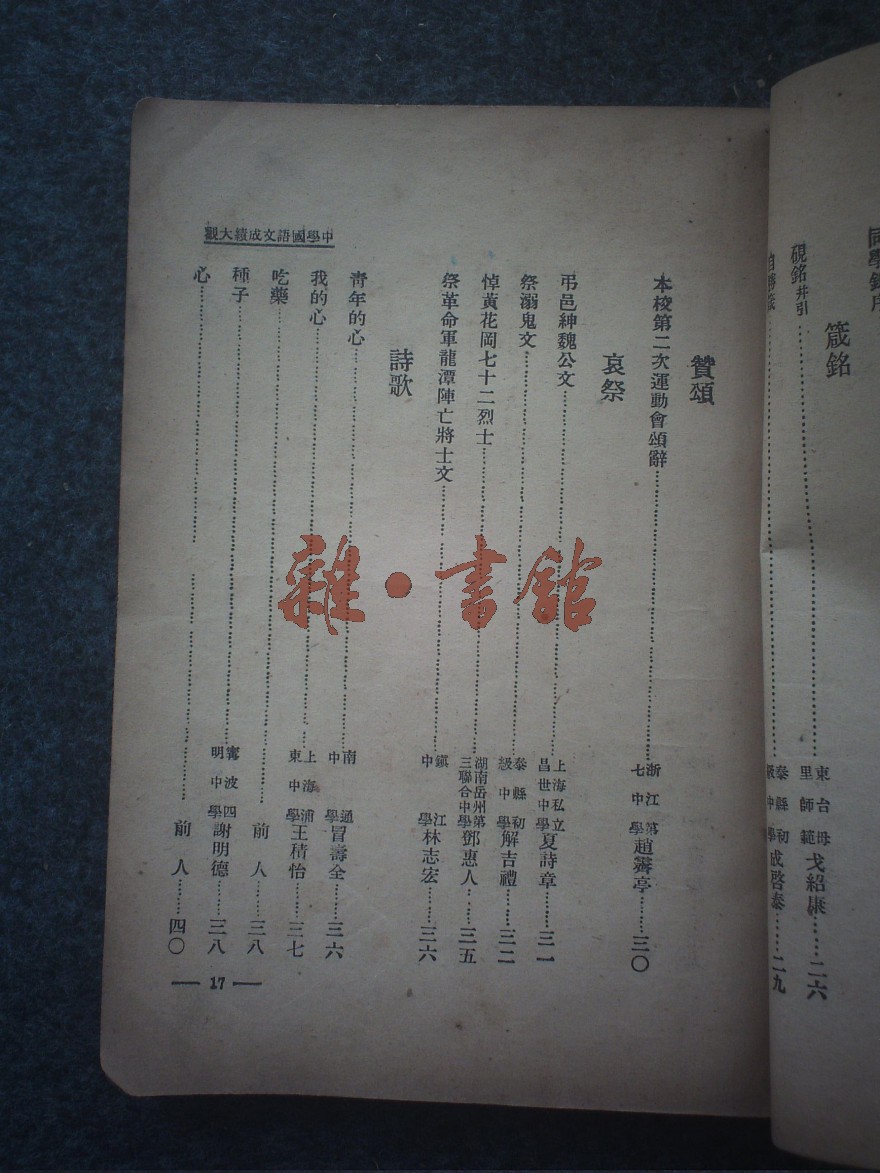 箴銘
硯銘并引……東台母里師範 戈紹康……二六
……泰縣初級中學 成啓泰……二九
贊頌
本校第二次運動會頌辭……浙江第七中學 趙霽亭……三〇
哀祭
弔邑紳魏公文……上海私立昌世中學 夏詩章……三一
祭溺鬼文……泰縣初級中學 解吉禮……三二
悼黃花岡七十二烈士……湖南岳州第三聯合中學 鄧惠人……三五
祭革命軍龍潭陣亡將士文……鎮江中學 林志宏……三六
詩歌
青年的心……南通中學 冒壽全……三六
我的心……上海浦東中學 王積怡……三七
吃藥……前人……三八
種子……寗波四明中學 謝明德……三八
心……前人……四〇
中學國語文成績大觀
— 17 —
雜·書館